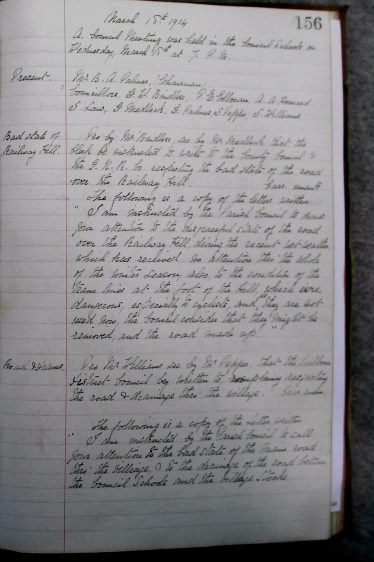 156
March 15th 1914
A Council Meeting was held in the Council Schools on
Wednesday, March 15th at 7. P.M.
Present. Mr. B. A. Palmer, Chairman,
Councillors, A. A. Howard
S. Lane, G. Medlock, G. Palmer, S. Pepper, S. Williams
Bad state of Pro by Mr. Bundlow, sec by Mr. Medlock, that the
Railway Hill. Clerk be instructed to write to the County Council &
the G. N. R. Co respecting the bad state of the road
over the Railway Hill.
The following is a copy of the letter written
"I am instructed by the Parish Council to draw
your attention to the disgraceful state of the road
over the Railway Hill during the recent wet weather
which has received no attention thro' the whole
of the winter season also to the condition of the
Tram lines at the foot of the hill, which are
dangerous, especially to cyclists, and they are not
used now, the Council consider that they might be
removed, and the road made up."
Road & drains. Pro Mr Williams sec by Mr Pepper, that the
District Council be written to respecting
the road & drainage thro' the village.
The following is a copy of the letter written.
"I am instructed by the Parish Council to call
your attention to the bad state of the main road
thro' the village, & to the drainage of the road between
the Council Schools and the village.